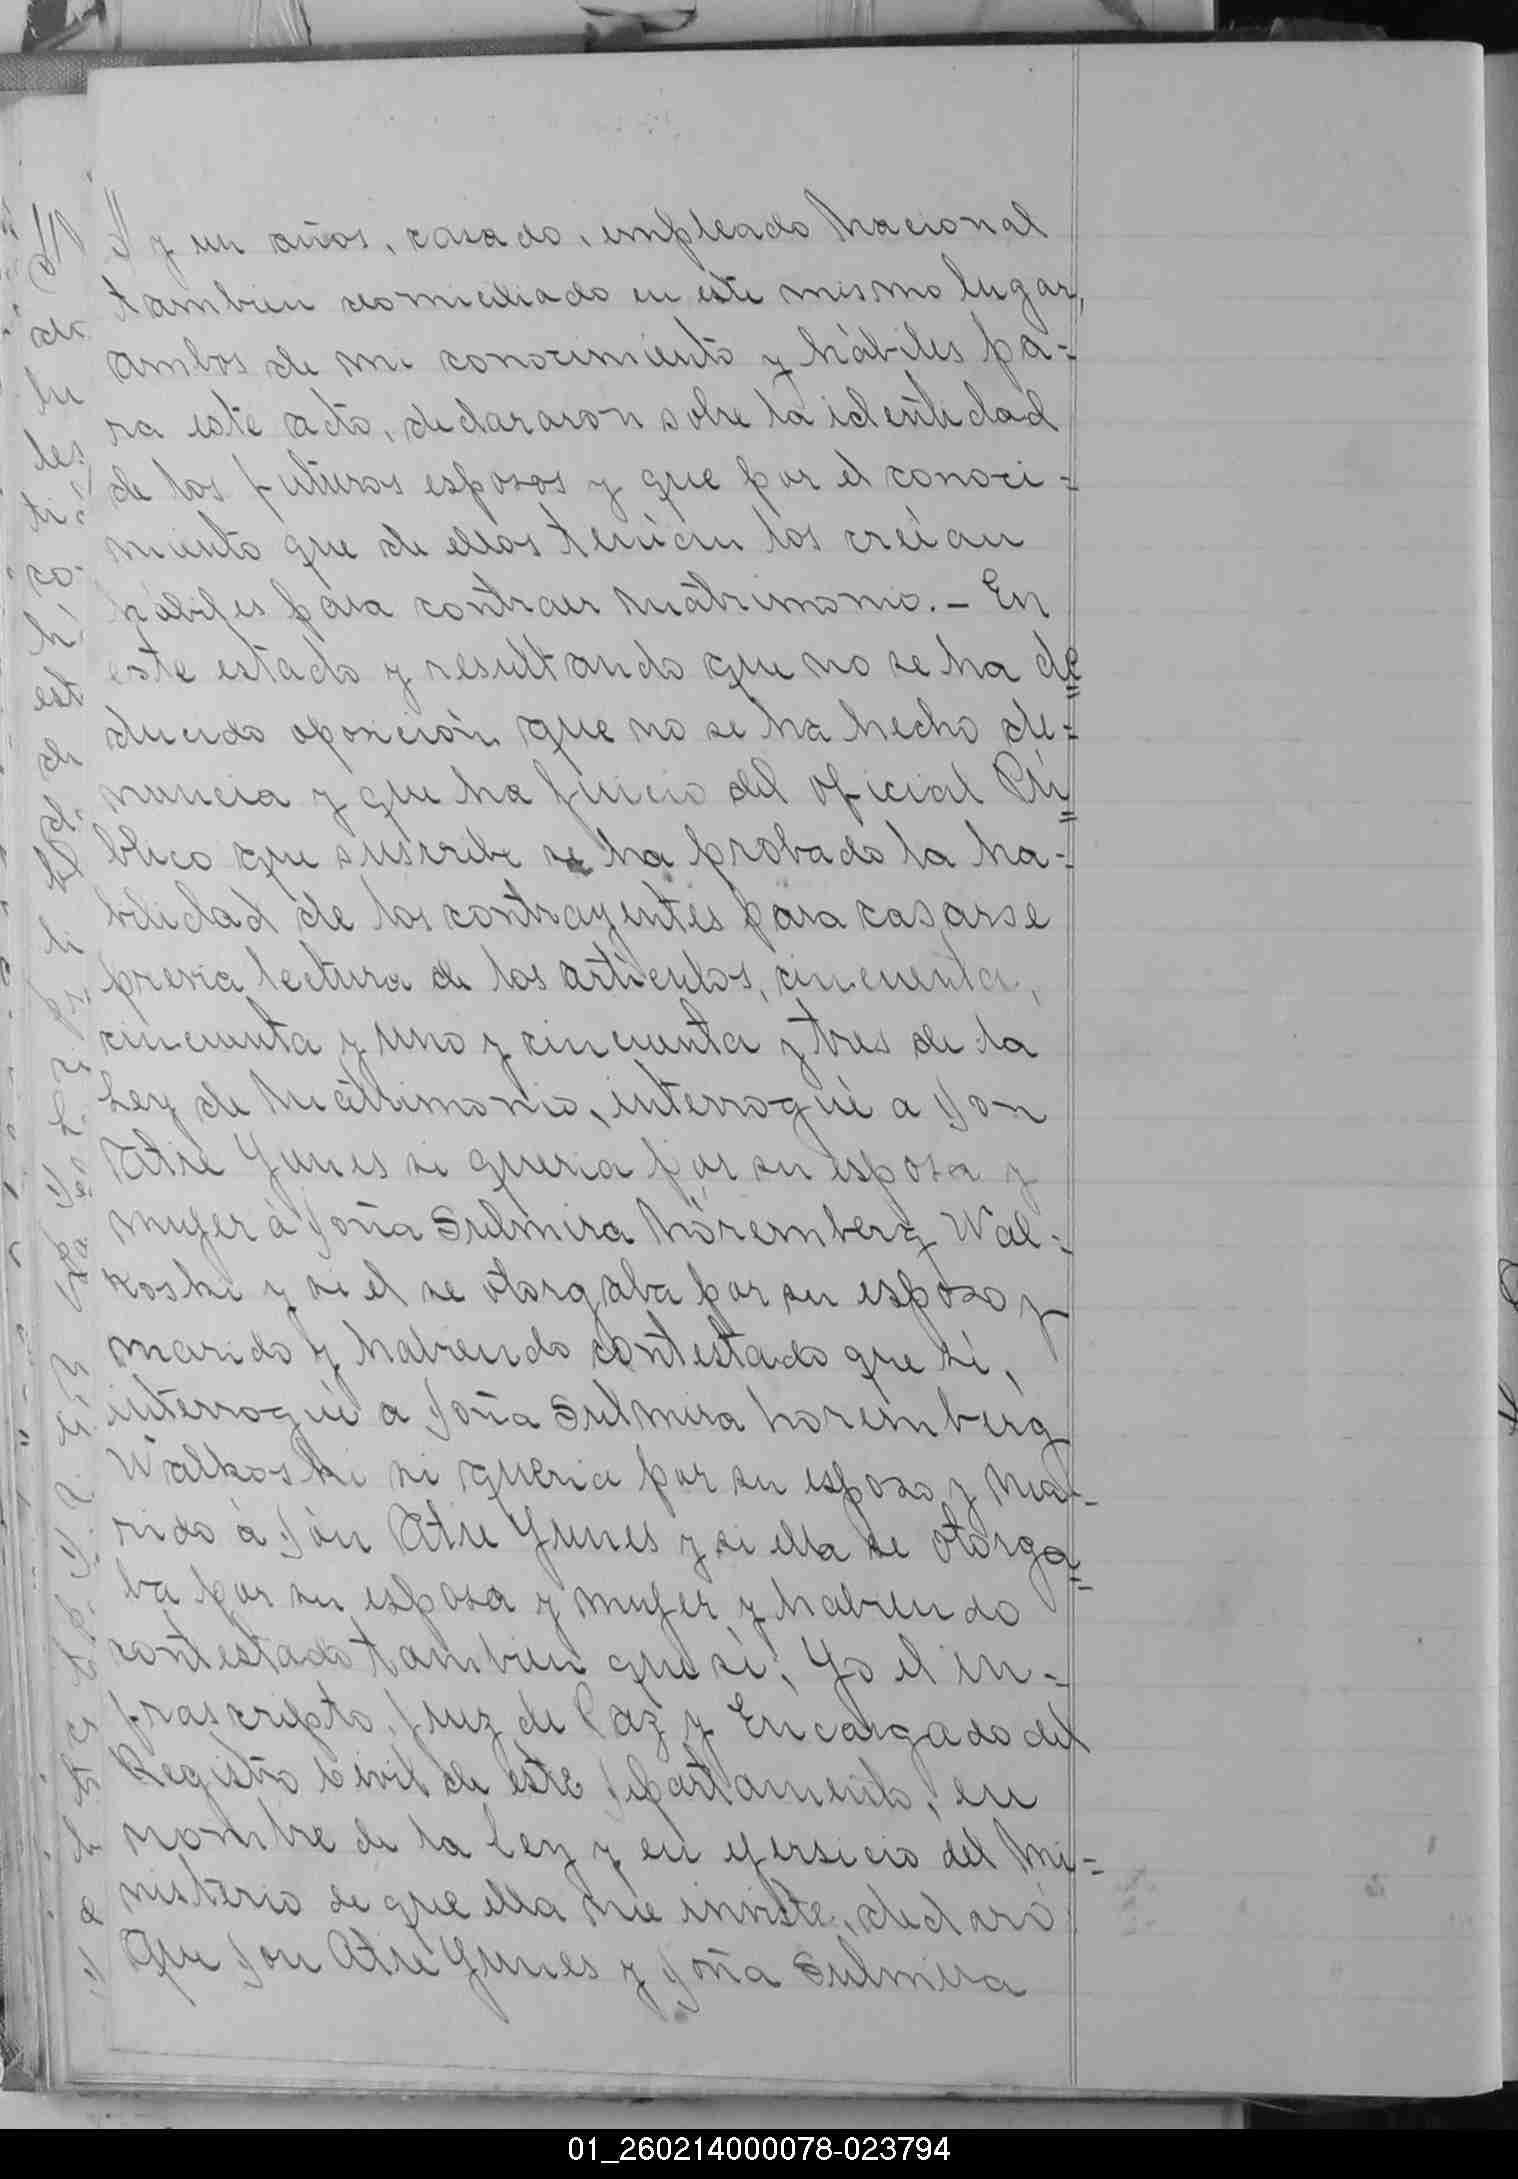 y un años, casado, empleado Nacional
tambien domiciliado en este mismo lugar,
ambos de mi conocimiento y hábiles pa-
ra este acto, declararon sobre la identidad
de los futuros esposos y que por el conoci-
miento que de ellos tenían los creían
hábiles para contraer Matrimonio. - En
este estado y resultando que no se ha de
ducido oposición que no se ha hecho de-
nuncia y que ha juicio del oficial Pú
blico que suscribe se ha probado la ha-
bilidad de los contrayentes para casarse
previa lectura de los artículos, cincuenta,
cincuenta y uno y cincuenta y tres de la
Ley de Matrimonio, interrogué a Don
Atie Yunes si queria por su esposa y
mujer á Doña Sulmira Noremberg Wal-
koski y si el se otorgaba por su esposo y
marido y habiendo contestado que sí,
interrogué a Doña Sulmira Noremberg
Walkoski si queria por su esposo y Ma-
rido á Don Atie Yunes y si ella se otorga
ba por su esposa y mujer y habiendo
contestado tambien que sí, Yo el in-
frascripto, Juez de Paz y Encargado del
Registro Civil de este Departamento, en
nombre de la Ley y en ejersicio del Mi-
nisterio de que ella me inviste, declaró
Que Don Atie Yunes y Doña Sulmira
01_260214000078-023794